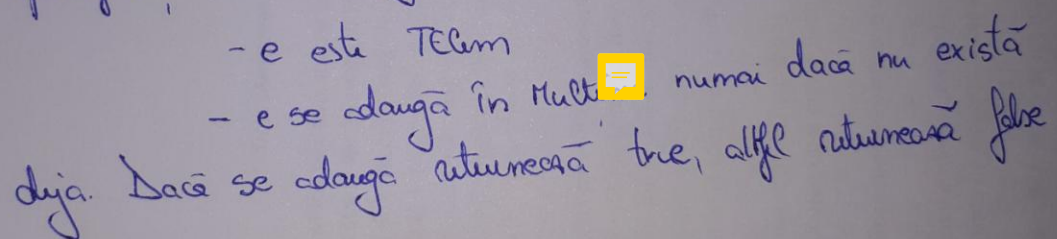 - e este TElem
- e se adaugă în numai dacă nu există
deja. Dacă se adaugă returnează true, altfel returnează false